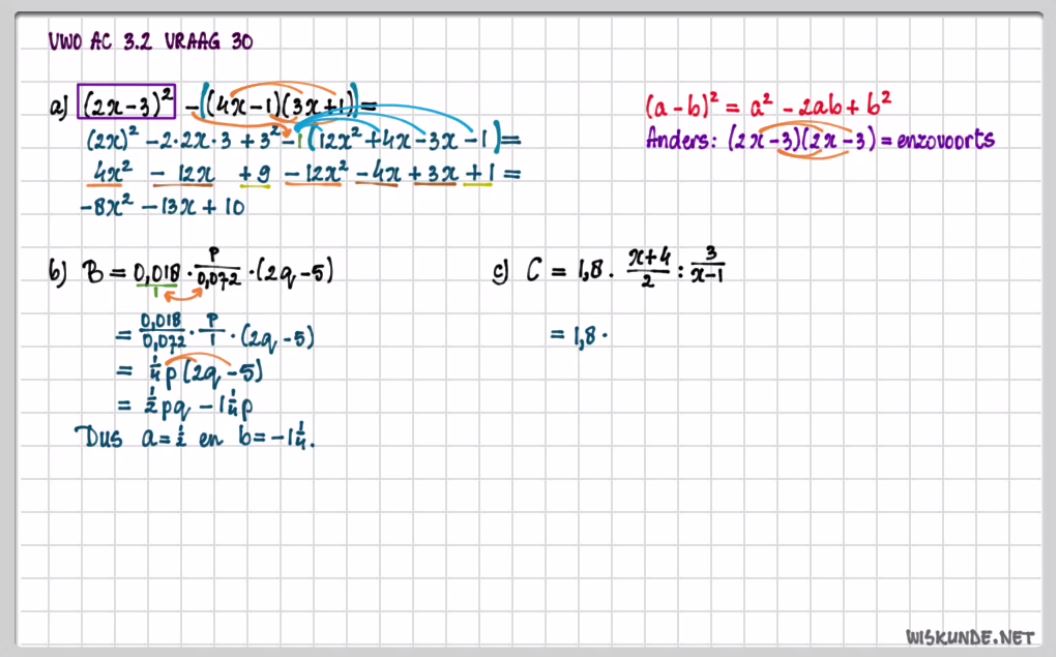 VWO AC 3.2 VRAAG 30
a) (2x-3)² - ((4x-1)(3x+1)) =
(2x)² - 2·2x·3 + 3² - 1(12x² + 4x - 3x - 1) =
4x² - 12x + 9 - 12x² - 4x + 3x + 1 =
-8x² - 13x + 10
(a-b)² = a² - 2ab + b²
Anders: (2x-3)(2x-3) = enzovoorts
b) B = 0,018/1 · p/0,072 · (2q-5)
= 0,018/0,072 · p/1 · (2q-5)
= ¼p(2q-5)
= ½pq - 1¼p
Dus a=½ en b=-1¼.
c) C = 1,8 · x+4/2 : 3/x-1
= 1,8 ·
WISKUNDE.NET